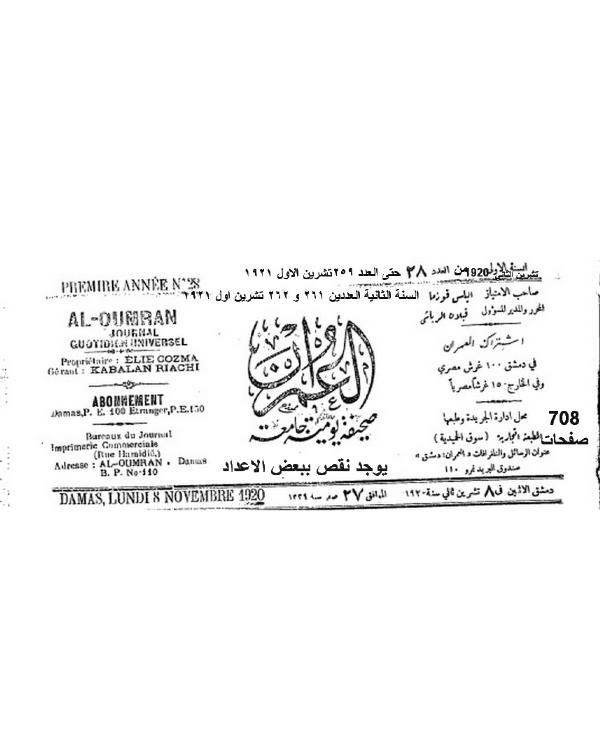 السنة الاولى
تشرين الثاني 1920 من العدد ٢٨ حتى العدد ٢٥٩ تشرين الاول ١٩٢١
السنة الثانية العددين ٢٦١ و ٢٦٢ تشرين اول ١٩٢١
PREMIRE ANNÉE N° 28
AL-OUMRAN
JOURNAL
QUOTIDIEN UNIVERSEL
Propriétaire : ÉLIE COZMA
Gérant : KABALAN RIACHI
ABONNEMENT
Damas, P. E. 100 Etranger, P.E. 150
Bureaux du Journal
Imprimerie Commerciales
(Rue Hamidié)
Adresse : AL-OUMRAN . Damas
B. P. No 110
العمران
صحيفة يومية جامعة
يوجد نقص ببعض الاعداد
صاحب الامتياز الياس قوزما
المحرر والمدير المسؤول قبلان الرياشي
اشتراك العمران
في دمشق ١٠٠ غرش مصري
وفي الخارج: ١٥٠ غرشاً مصرياً
محل ادارة الجريدة وطبعها
المطبعة التجارية (سوق الحميدية)
عنوان الرسائل والتلغرافات « العمران: دمشق »
صندوق البريد نمرو ١١٠
708
صفحات
DAMAS, LUNDI 8 NOVEMBRE 1920
دمشق الاثنين في ٨ تشرين ثاني سنة ١٩٢٠ الموافق ٢٧ صفر سنة ١٣٣٩